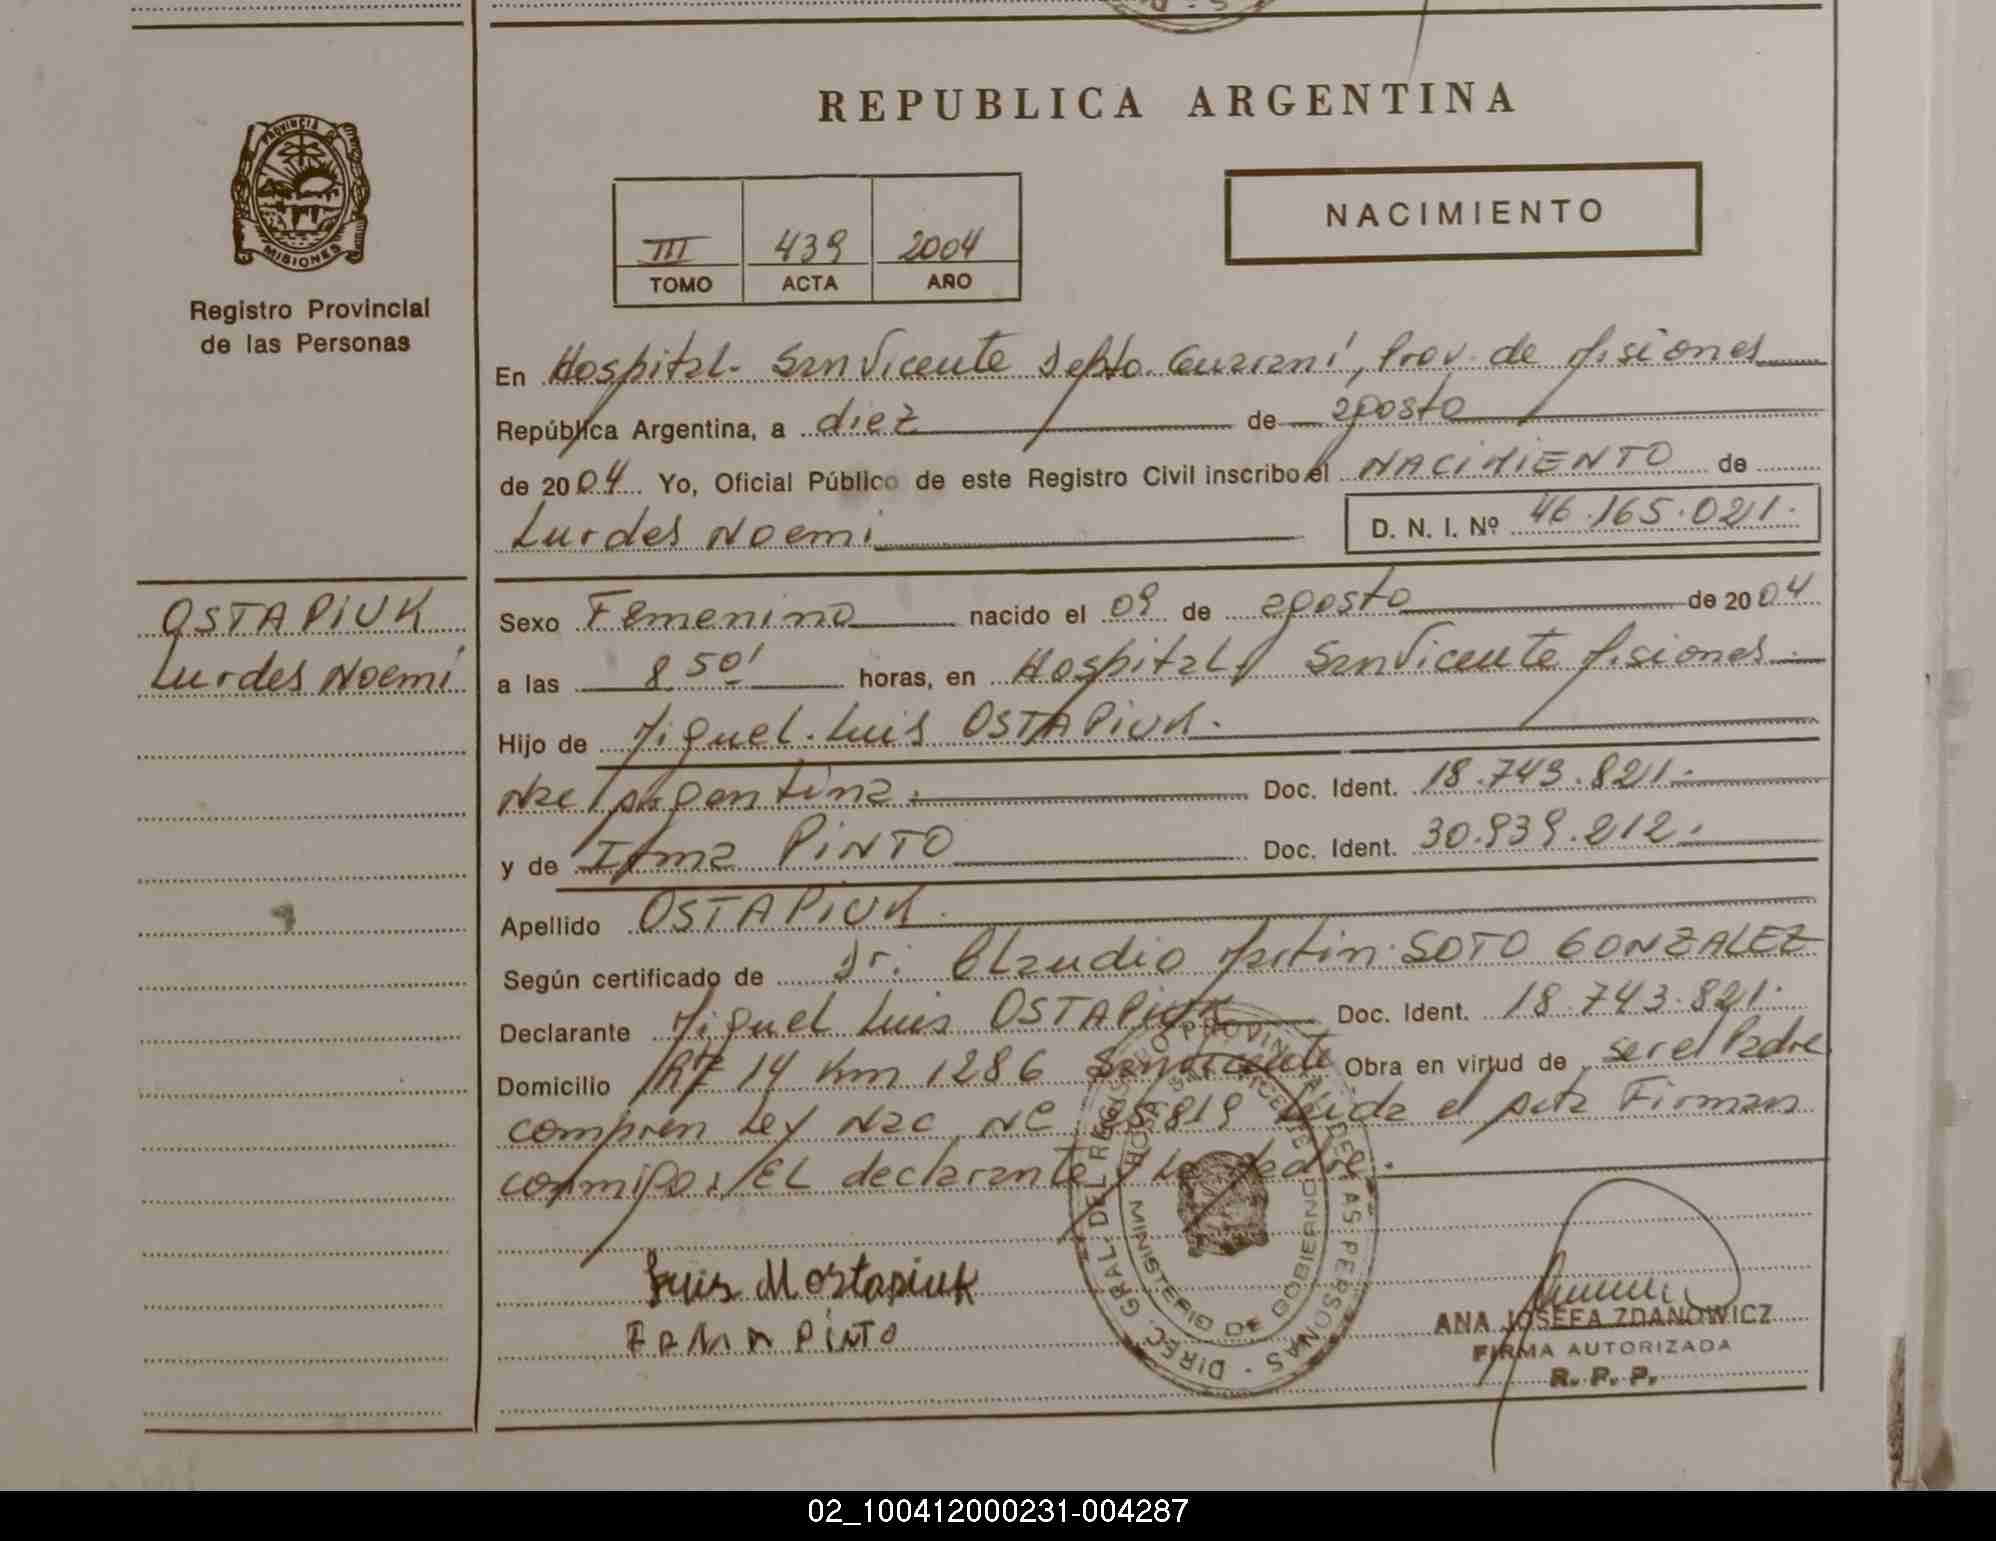 REPUBLICA ARGENTINA
PROVINCIA DE MISIONES
Registro Provincial
de las Personas
III 439 2004
TOMO ACTA AÑO
NACIMIENTO
En Hospital. San Vicente Depto. Guaraní, Prov. de Misiones
República Argentina, a diez de agosto
de 2004 Yo, Oficial Público de este Registro Civil inscribo el NACIMIENTO de
Lurdes Noemi D. N. I. Nº 46.165.021.
OSTAPIUK
Lurdes Noemí
Sexo Femenino nacido el 09 de agosto de 2004
a las 8 50' horas, en Hospital, San Vicente Misiones
Hijo de Miguel Luis OSTAPIUK.
Nac Argentina. Doc. Ident. 18.743.821.
y de Irma PINTO Doc. Ident. 30.939.212.
Apellido OSTAPIUK.
Según certificado de Dr. Claudio Martin SOTO GONZALEZ
Declarante Miguel Luis OSTAPIUK Doc. Ident. 18.743.821.
Domicilio 14 Km 1286 San Vicente Obra en virtud de ser el Padre
Ley Nac 25819 Leida el Acta Firman
conmigo: EL declarante y La Madre.
Luis Mostapiuk
PINTO
DIREC. GRAL. DEL REGISTRO PROVINCIAL DE LAS PERSONAS
MINISTERIO DE GOBIERNO
ANA JOSEFA ZDANOWICZ
FIRMA AUTORIZADA
R. P. P.
02_100412000231-004287